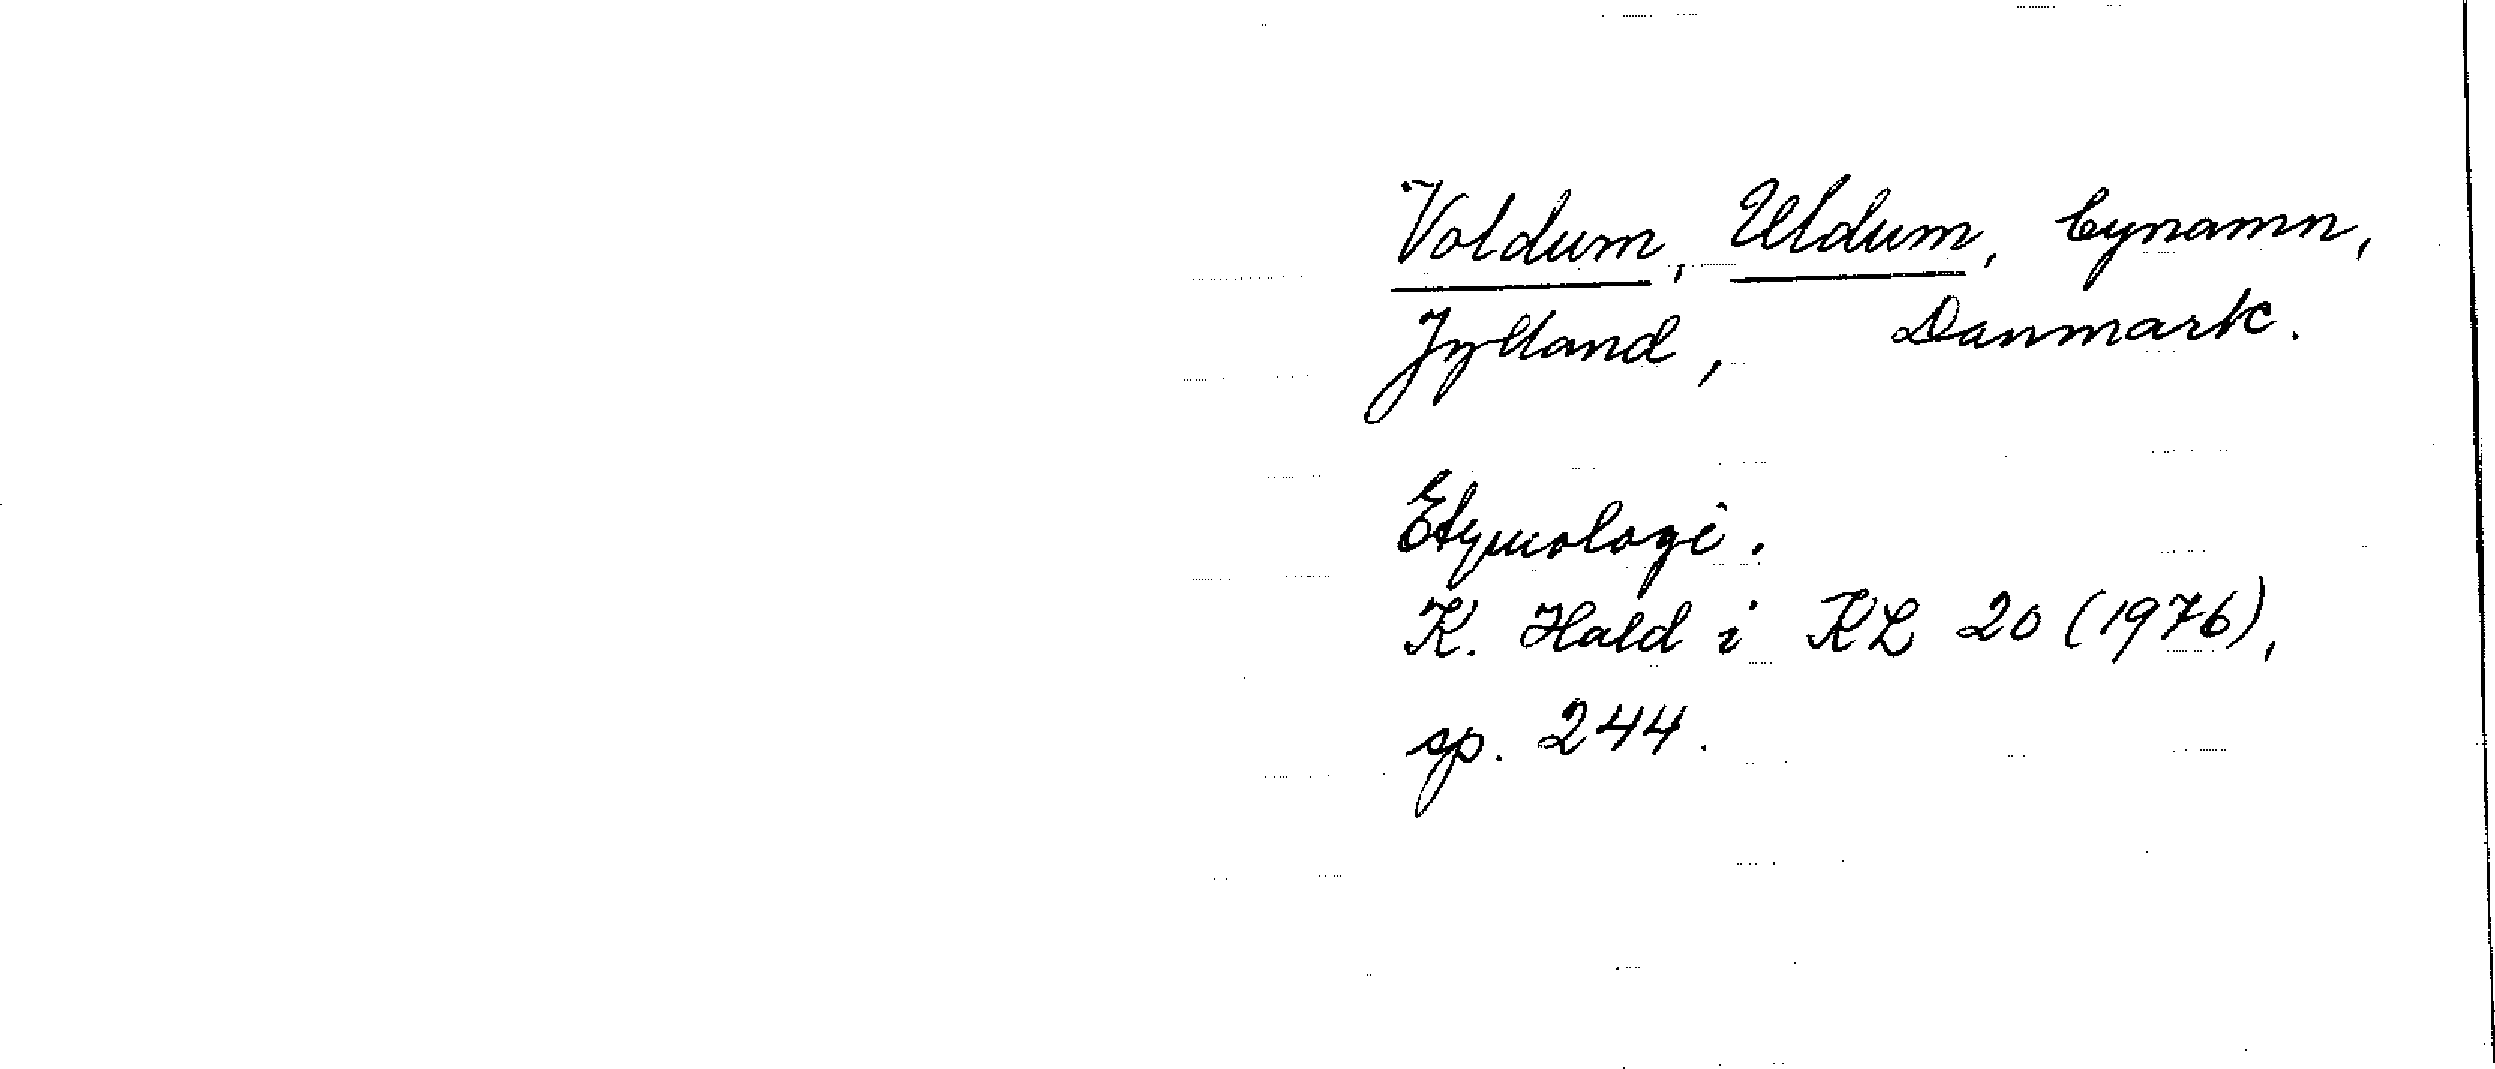 Voldum, Uldum, bynamn,
Jylland, Danmark.
Etymologi.
K. Hald i KL 20 (1976),
sp. 244.